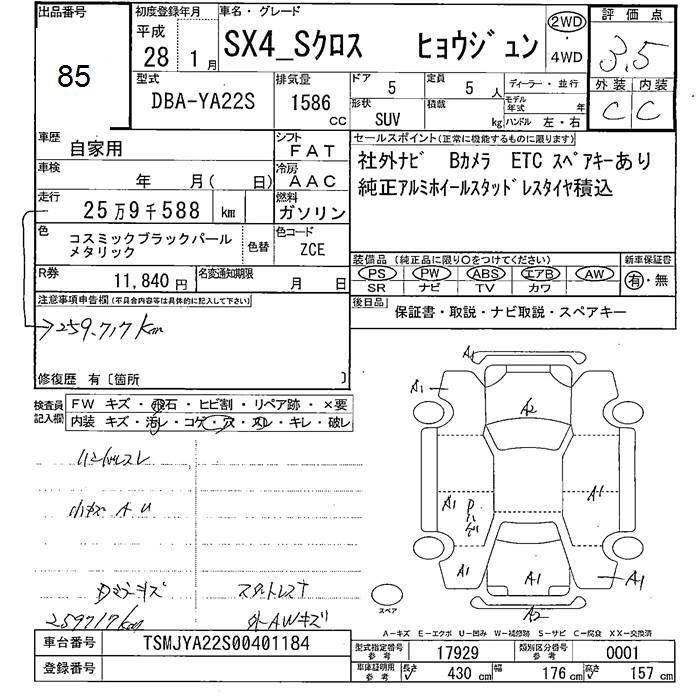 出品番号 初度登録年月 車名・グレード 評価点
85 平成 28年 1月 SX4_Sクロス ヒョウジュン 2WD・4WD 3.5
型式 排気量 ドア 5 定員 5人 ディーラー・並行 外装 内装
DBA-YA22S 1586cc 形状 SUV 積載 kg モデル年式 年 ハンドル 左・右 C C
車歴 自家用 シフト FAT セールスポイント(正常に機能するものに限ります)
車検 年 月( 日) 冷房 AAC 社外ナビ Bカメラ ETC スペアキーあり
走行 25万9千588 km 燃料 ガソリン 純正アルミホイールスタッドレスタイヤ積込
色 コスミックブラックパールメタリック 色替 色コード ZCE
装備品(純正品に限り○をつけてください) 新車保証書
R券 11,840円 名変通知期限 月 日 PS PW ABS エアB AW 有・無
SR ナビ TV カワ
注意事項申告欄(不具合内容等は具体的に記入して下さい) 後日品 保証書・取説・ナビ取説・スペアキー
→259.717km
修復歴 有〔箇所 〕
検査員記入欄 FW キズ・飛石・ヒビ割・リペア跡・×要
内装 キズ・汚レ・コゲ・穴・スレ・キレ・破レ
ハンドルスレ
小キズ A U
Dミラーキズ
259717km 外-AWキズ
A1
A1
A2
A1 A1
A1 A1 A1
A2
スペア
A-キズ E-エクボ U-凹み W-補修跡 S-サビ C-腐食 XX-交換済
車台番号 TSMJYA22S00401184 型式指定番号 参考 17929 類別区分番号 参考 0001
登録番号 車庫証明用 参考 長さ 430cm 幅 176cm 高さ 157cm